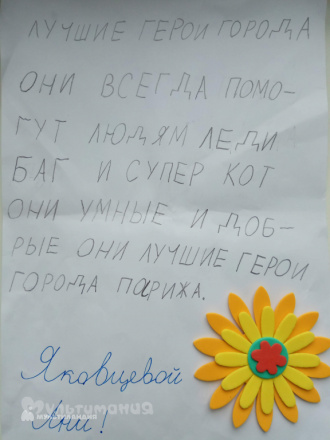 ЛУЧШИЕ ГЕРОИ ГОРОДА
ОНИ ВСЕГДА ПОМО-
ГУТ ЛЮДЯМ ЛЕДИ
БАГ И СУПЕР КОТ
ОНИ УМНЫЕ И ДОБ-
РЫЕ ОНИ ЛУЧШИЕ ГЕРОИ
ГОРОДА ПАРИЖА.
Яковцевой
Мультимания
Ани!